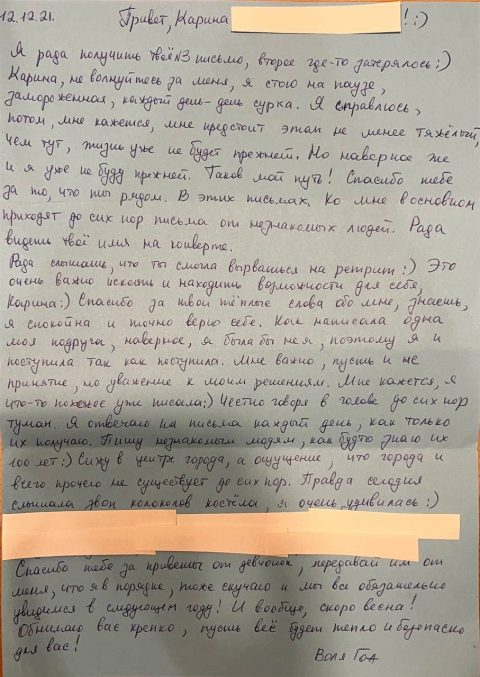 12.12.21. Привет, Карина ! :)
Я рада получить твоё №3 письмо, второе где-то затерялось :)
Карина, не волнуйтесь за меня, я стою на паузе,
замороженная, каждый день - день сурка. Я справлюсь,
потом, мне кажется, мне предстоит этап не менее тяжёлый,
чем тут, жизнь уже не будет прежней. Но наверное же
и я уже не буду прежней. Таков мой путь! Спасибо тебе
за то, что ты рядом. В этих письмах. Ко мне в основном
приходят до сих пор письма от незнакомых людей. Рада
видеть твоё имя на конверте.
Рада слышать, что ты смогла вырваться на ретрит :) Это
очень важно искать и находить возможности для себя,
Карина :) Спасибо за твои тёплые слова обо мне, знаешь,
я спокойна и точно верю себе. Как написала одна
моя подруга, наверное, я была бы не я, поэтому я и
поступила так как поступила. Мне важно, пусть и не
принятие, но уважение к моим решениям. Мне кажется, я
что-то похожее уже писала :) Честно говоря в голове до сих пор
туман. Я отвечаю на письма каждый день, как только
их получаю. Пишу незнакомым людям, как будто знаю их
100 лет :) Сижу в центре города, а ощущение, что города и
всего прочего не существует до сих пор. Правда сегодня
слышала звон колоколов костёла, я очень удивилась :)
Спасибо тебе за приветы от девчонок, передавай им от
меня, что я в порядке, тоже скучаю и мы все обязательно
увидимся в следующем году! И вообще, скоро весна!
Обнимаю вас крепко, пусть всё будет тепло и безопасно
для вас!
Воля